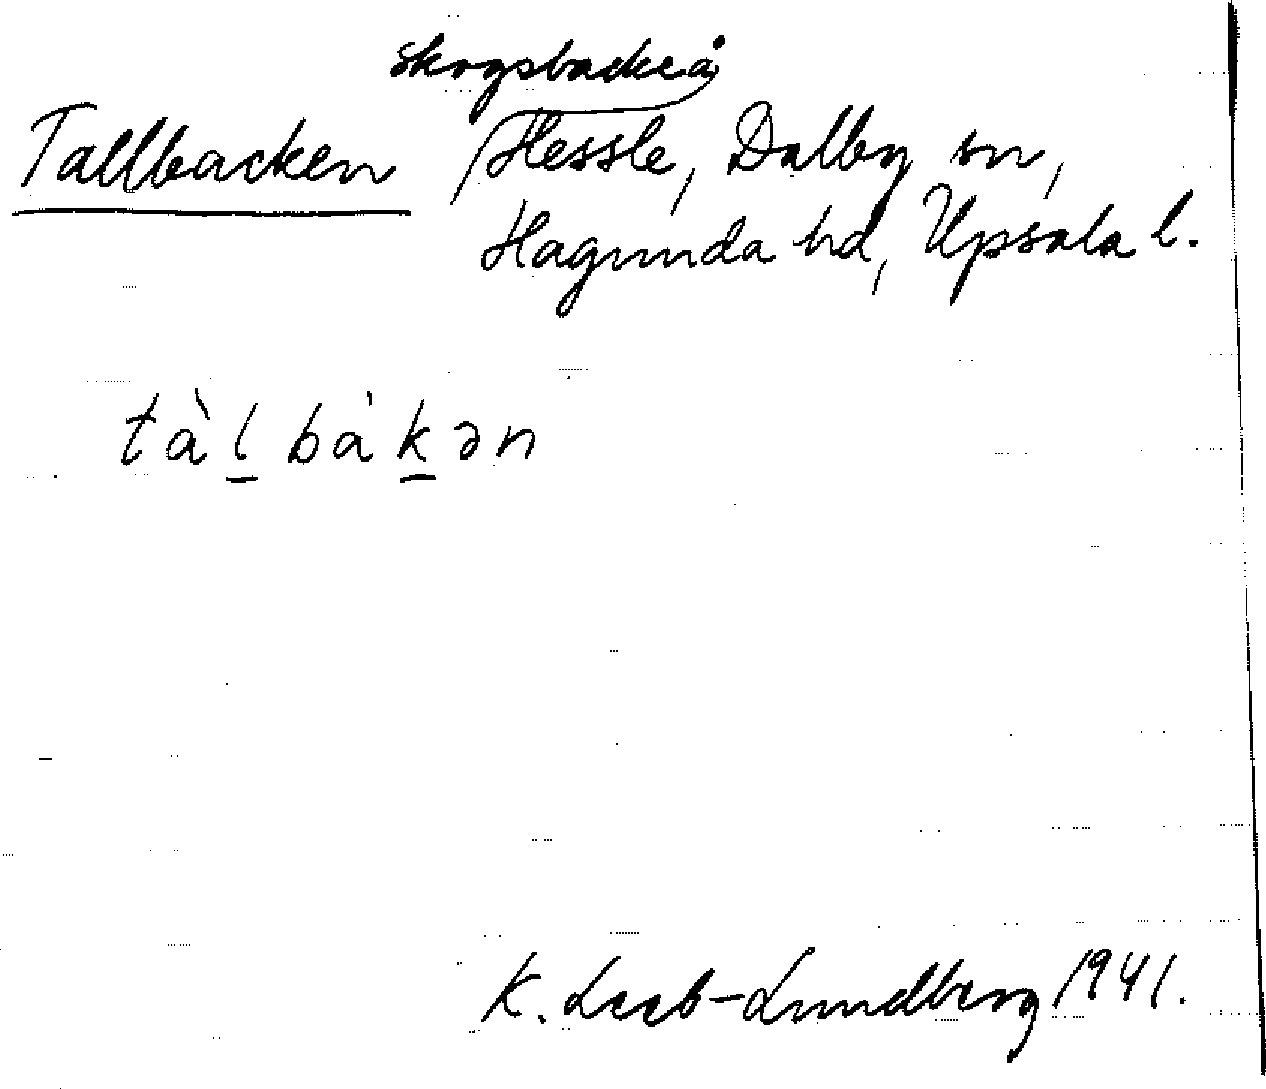 skogsbacke å
Tallbacken Hessle, Dalby sn,
Hagunda hd, Upsala l.
tàl bàkən
K. Leeb-Lundberg 1941.